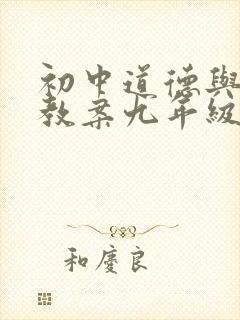 初中道德與
教案九年級
和慶良